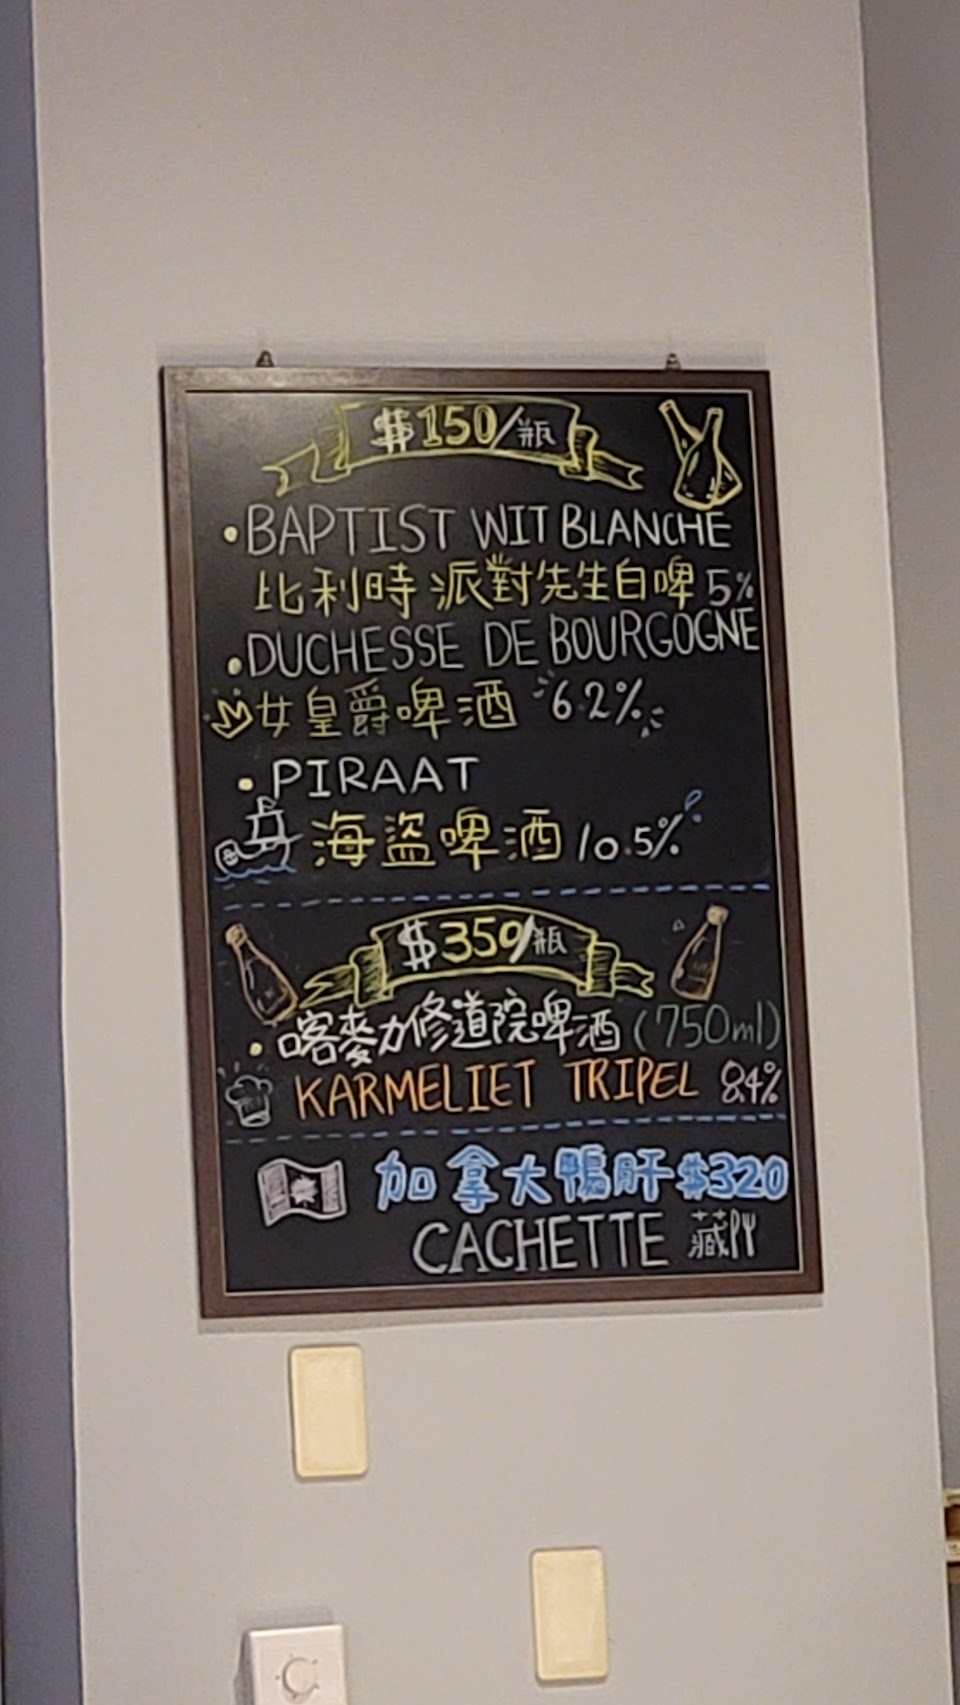 $150/瓶
•BAPTIST WIT BLANCHE
比利時 派對先生白啤 5%
•DUCHESSE DE BOURGOGNE
女皇爵啤酒 6.2%
•PIRAAT
海盜啤酒 10.5%
$350/瓶
•喀麥力修道院啤酒 (750ml)
KARMELIET TRIPEL 8.4%
加拿大鴨肝 $320
CACHETTE 藏